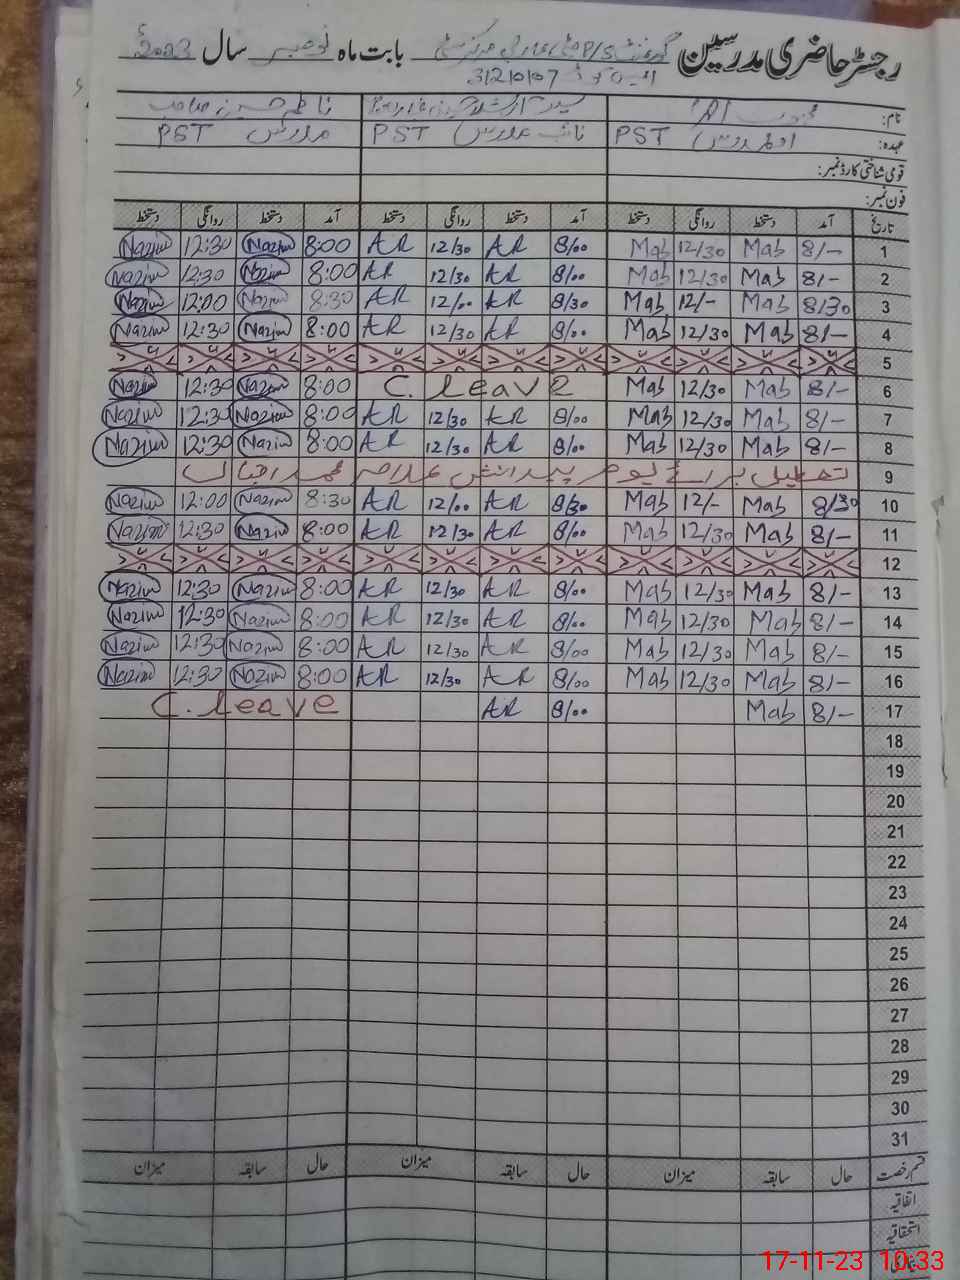 رجسٹر حاضری مدرسین گورنمنٹ P/S بابت ماہ نومبر سال 2023
31210107
نام:
عہدہ: PST نائب مدرس PST مدرس PST
قومی شناختی کارڈ نمبر:
فون نمبر:
تاریخ آمد دستخط روانگی دستخط آمد دستخط روانگی دستخط آمد دستخط روانگی دستخط
1 8/- Mab 12/30 Mab 8/00 AR 12/30 AR 8:00 Nazim 12:30 Nazim
2 8/- Mab 12/30 Mab 8/00 AR 12/30 AR 8:00 Nazim 12:30 Nazim
3 8/30 Mab 12/- Mab 8/30 AR 12/00 AR 8:30 Nazim 12:00 Nazim
4 8/- Mab 12/30 Mab 8/00 AR 12/30 AR 8:00 Nazim 12:30 Nazim
5
6 8/- Mab 12/30 Mab C. leave 8:00 Nazim 12:30 Nazim
7 8/- Mab 12/30 Mab 8/00 AR 12/30 AR 8:00 Nazim 12:30 Nazim
8 8/- Mab 12/30 Mab 8/00 AR 12/30 AR 8:00 Nazim 12:30 Nazim
9 تعطیل برائے یوم پیدائش علامہ محمد اقبال
10 8/30 Mab 12/- Mab 8/30 AR 12/00 AR 8:30 Nazim 12:00 Nazim
11 8/- Mab 12/30 Mab 8/00 AR 12/30 AR 8:00 Nazim 12:30 Nazim
12
13 8/- Mab 12/30 Mab 8/00 AR 12/30 AR 8:00 Nazim 12:30 Nazim
14 8/- Mab 12/30 Mab 8/00 AR 12/30 AR 8:00 Nazim 12:30 Nazim
15 8/- Mab 12/30 Mab 8/00 AR 12/30 AR 8:00 Nazim 12:30 Nazim
16 8/- Mab 12/30 Mab 8/00 AR 12/30 AR 8:00 Nazim 12:30 Nazim
17 8/- Mab 8/00 AR C. leave
18
19
20
21
22
23
24
25
26
27
28
29
30
31
قسم رخصت حال سابقہ میزان حال سابقہ میزان حال سابقہ میزان
اتفاقیہ
استحقاقیہ
17-11-23 10:33